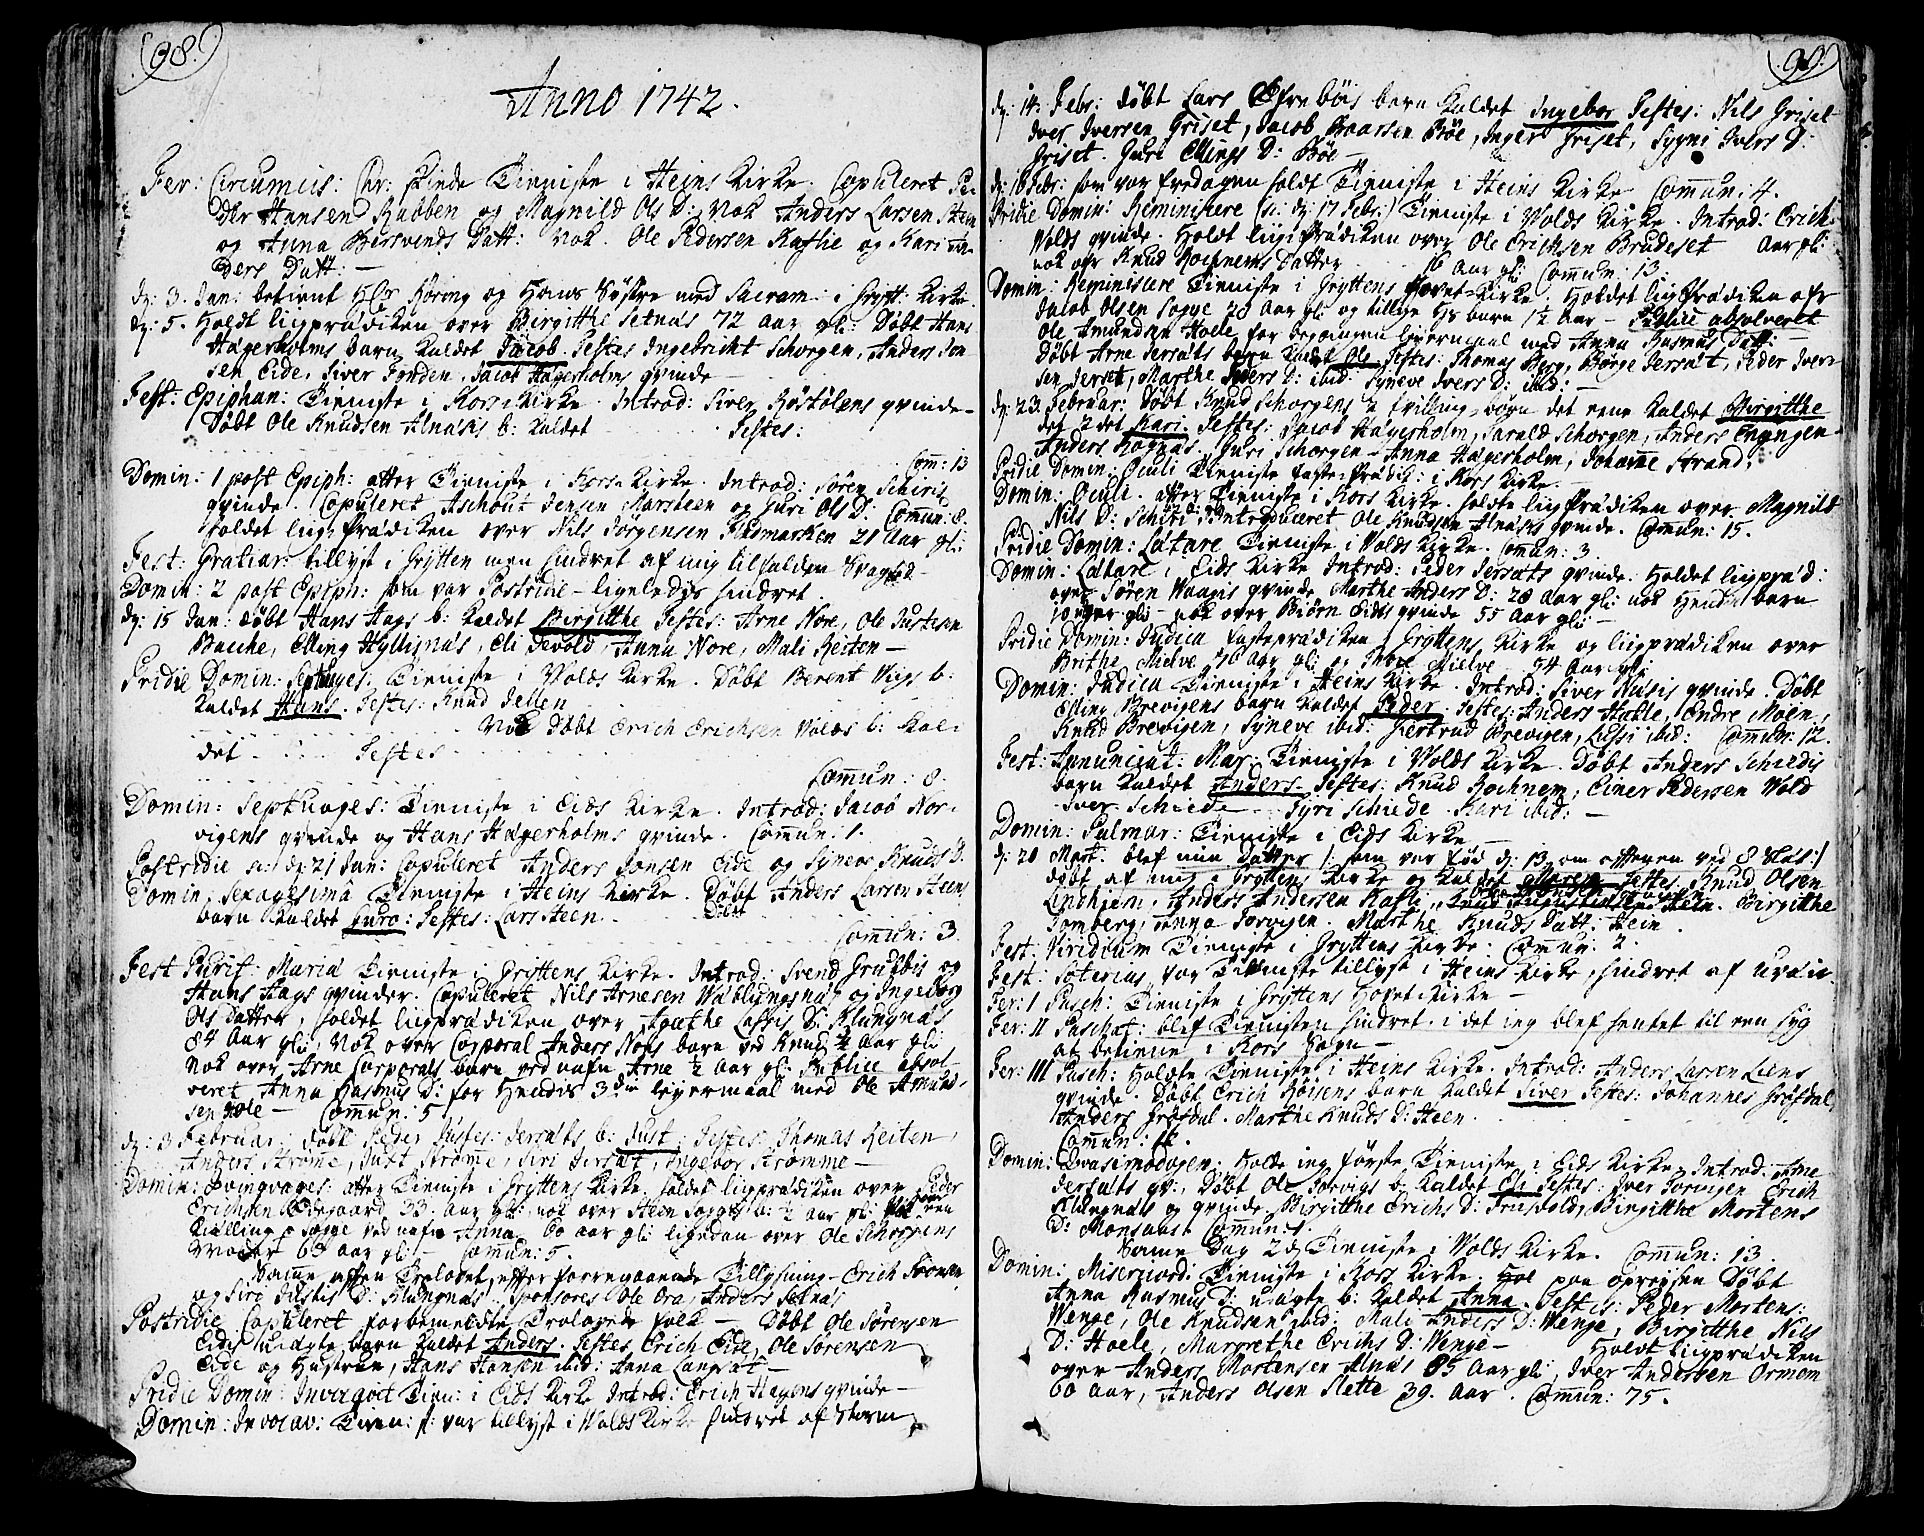 98.
Anno 1742.
Fer: Circumcis: Chr: skinde Tienniste i Heins Kirke. Copuleret Pe-
der Hansen Rabben og Magnild Ols D: Nok Anders Larsen Stein
og Anna Bersvends Datt: Nok. Ole Pedersen Kaflie og Kari An-
ders Datt: —
d: 3. Jan: betient og Hans Søstre med Sacram: i Grytt: Kirke
d: 5. Holdt liigprædiken over Birgitthe Setnæs 72 Aar gl: Døbt Hans
Hagerholms barn kaldet Jacob. Testes Ingebricht Schorgen, Anders Jon
sen Eide, Siver Fonden, Jacob Hagerholms qvinde —
Fest: Epiphan: Tienniste i Kors Kirke. Introd: Siver Røstølens qvinde —
Døbt Ole Knudsen Alnæs b: kaldet Testes:
Com: 13
Domin: 1 post Epiph: atter Tienniste i Kors Kirke. Introd: Søren Schiris
qvinde. Copuleret Aschout Jensen Marsteen og Guri Ols D: Commun: 8.
Holdet liig Prædiken over Nils Jørgensen 21 Aar gl:
Fest: Gratiar: tillyst i Grytten men hindret af mig tilfalden Svaghed
Domin: 2 post Epiph: som var Postridie — ligeledes hindret.
d: 15 Jan: døbt Hans Hags b: kaldet Birgitthe Testes: Arne Nore, Ole Justesen
Bacche, Elling Hyllignæs, Eli Devold, Anna Nore, Mali Reiten —
Pridie Domin: Septuages: Tienniste i Volds Kirke. Døbt Berent Viigs b:
kaldet Hans. Testes: Knud Jellen
Nok Døbt Erich Erichsen Volds b: kal-
det Testes
Commun: 8.
Domin: Septuages: Tienniste i Eids Kirke. Introd: Jacob Nor-
vigens qvinde og Hans Hagerholms qvinde. Commun: 1.
Postridie sc: d: 21 Jan: Copuleret Anders Jonsen Eide og Syneve Knuds D:
Domin: Sexagesima Tienniste i Heins Kirke. Døbt Anders Larsen Steens
barn kaldet Guro: Testes: Lars Steen
Commun: 3
Fest Purif: Mariæ Tienniste i Gryttens Kirke. Introd: Svend Grubbis og
Hans Hags qvinder. Copuleret Nils Arnesen Wæblungsnæs og Ingeborg
Ols Datter, holdet liigprædiken over Agathe Lassis D: Klungnæs
84 Aar gl:, Nok over Corporal Anders Nors barn ved Knud ½ Aar gl:
Nok over Arne Corporals barn ved nafn Arne ½ Aar gl: Publice absol-
veret Anna Rasmus D: for Hendis 3die leyermaal med Ole Amund-
sen Hole — Commun: 5
d: 3 Februar: døbt Peder Justes: Jersæts b: Just: Testes Thomas Reiten,
Anders Strømme, Just Strømme, Siri Jersæt, Ingebor Strømme —
Domin: Qvinqvages: atter Tienniste i Gryttens Kirke, holdet liigprædiken over Peder
Erichsen Ødegaard 33 Aar gl: nok over Stein Sogges b: ½ Aar gl: Nok over een
Kielling i Sogge ved nafn Anna 60 Aar gl: ligedan over Ole Schorgens
Moder 63 Aar gl: — Commun: 5.
Samme aften Trolovet, efter forregaaende Tillysning — Erich Joensen
og Siri Justis D: Klungnæs. Sponsores Ole Ora, Anders Setnæs
Postridie Copuleret forbemeldte Trolovede folk — Døbt Ole Sørensen
Eide uægte barn kaldet Anders. Testes Erich Eide, Ole Sørensen
Eide og Hustrue, Hans Hansen ibid: Anna Langsæt —
Pridie Domin: Invocavit Tien: i Eids Kirke Introd: Erich Hagens qvinde —
Domin: Invocav: Tienn: s: var tillyst i Volds Kirke hindret af Storm
99.
d: 14. Febr: døbt Lars Øfre bøis barn kaldet Ingebor Testes: Nils Griset
Iver Iversen Griset, Jacob Baarsen Bøe, Inger Griset, Sygni Ivers D:
Griset. Guri Ellings D: Bøe —
d: 16 Febr: som var fredagen holdt Tienniste i Heins Kirke Commun: 4.
Pridie Domin: Reministere (sc: d: 17 Febr:) Tienniste i Volds Kirke. Introd: Erich
Volds qvinde. Holdt liigprædiken over Ole Erichsen Brudeset Aar gl:
nok over Knud Kochnems Datter 16 Aar gl: Commun: 13.
Domin: Reministere Tienniste i Gryttens Hovet-Kirke. Holdet liigprædiken over
Jacob Olsen Sogge 20 Aar gl: og tillige Hs barn 1½ Aar — Publice absolveret
Ole Amundsen Hoele for begangen leyermaal med Anna Rasmus Datt: —
Døbt Arne Jersæts barn kaldet Ole. Testes: Thomas Berg, Børge Jersæt, Peder Iver-
sen Jerset, Marthe Peders D: ibid: Syneve Ivers D: ibid: —
d: 23. Februar: Døbt Knud Schorgens 2 tvilling-børn det eene kaldet Birgitthe
det 2det Kari. Testes: Jacob Hagerholm, Harald Schorgen, Anders Engingen
Anders Kognæs. Guri Schorgen — Anna Hagerholm, Johanne Strand.
Pridie Domin: Oculi Tienniste faste-Prædik: i Kors Kirke.
Domin: Oculi. atter Tienniste i Kors Kirke. holdte liigprædiken over Magnild
Nils D: Schiri. Introduceret Ole Knudsen Alnæsis qvinde. Commun: 15.
Pridie Domin: Lætare Tienniste i Volds Kirke. Commun: 3.
Domin: Lætare, i Eids Kirke Introd: Peder Jersæts qvinde. Holdet liigpræd:
over Søren Waages qvinde Marthe Anders D: 28 Aar gl: nok Hendes barn
10 uger gl: — nok over Biørn Eids qvinde 55 Aar gl: —
Pridie Domin: Judica fasteprædiken i Gryttens Kirke og liigprædiken over
Brithe Mielve 76 Aar gl: og Thore Mielve 74 Aar gl:
Domin: Judica Tienniste i Heins Kirke. Introd: Siver Næsis qvinde. Døbt
Elling Brevigens barn kaldet Peder. Testes: Anders Hatle, Endre Moen,
Knud Brevigen, Syneve ibid: Giertrud Brevigen, Lussi ibid: Commun: 12.
Fest: Annunciat: Mar: Tienniste i Volds Kirke. Døbt Anders Schiedis
barn kaldet Anders. Testes: Knud Kochnem, Einer Pedersen Wold
Iver Schiede Gyri Schiede. Kari ibid: —
Domin: Palmar: Tienniste i Eids Kirke —
d: 20 Mart. blef min Datter /: som var fød d: 13 om aftenen ved 8 slæt :/
døbt af mig i Gryttens Kirke og kaldet Testes. Knud Olsen
Lindhjem, Anders Andersen Kafli, Stein. Birgitthe
Tomberg, Anna Torvigen. Marthe Knuds Datt: Hein.
Fest: Viridium Tienniste i Gryttens Kirke. Commun: 2.
Fest: Soterias, var Tienniste tillyst i Heins Kirke, hindret af uvæir.
Fer: 1 Pasch: Tienniste i Gryttens Hovet Kirke —
Fer: II Paschat: blef Tienisten hindret, i det ieg blef hentet til een syg
at betiene i Kors Sogn —
Fer: III Pasch: Holdte Tienniste i Heins Kirke. Introd: Anders Larsen Liens
qvinde. Døbt Erich Bøisens barn kaldet Siver Testes: Johannes Grøfdal,
Anders Grøfdal. Marthe Knuds D: Steen.
Commun: 16.
Domin: Qvasimodogen: Holdt ieg første Tienniste i Eids Kirke Introd: Arne
Jersæts qv:, Døbt Ole Torvigs b: kaldet Eli Testes: Iver Torvigen Erich
Klungnæs og qvinde Birgitthe Erichs D: Birgitthe Mortens
D: Monsaas Commun:
Samme Dag 2d: Tienniste i Volds Kirke. Commun: 13.
Domin: Misericord: Tienniste i Kors Kirke. paa opreysen Døbt
Anna Rasmus D: uægte b: kaldet Anna. Testes: Peder Mortens:
Wenge, Ole Knudsen ibid: Mali Anders D: Wenge, Birgitthe Nils
D: Hoele, Margrethe Erichs D: Wenge — Holdt liigprædiken
over Anders Mortensen Alnæs 85 Aar gl:, Iver Andersen Ormem
60 Aar, Anders Olsen Slette 39. Aar. Commun: 75.